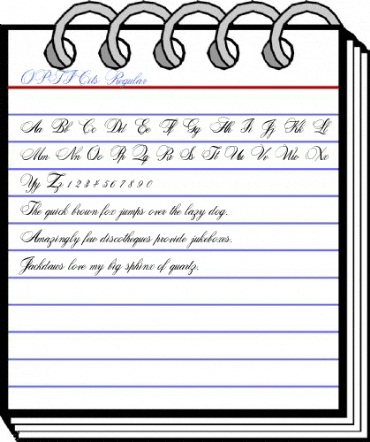 OPTI-Cits Regular
Aa Bb Cc Dd Ee Ff Gg Hh Ii Jj Kk Ll
Mm Nn Oo Pp Qq Rr Ss Tt Uu Vv Ww Xx
Yy Zz 1 2 3 4 5 6 7 8 9 0
The quick brown fox jumps over the lazy dog.
Amazingly few discotheques provide jukeboxes.
Jackdaws love my big sphinx of quartz.